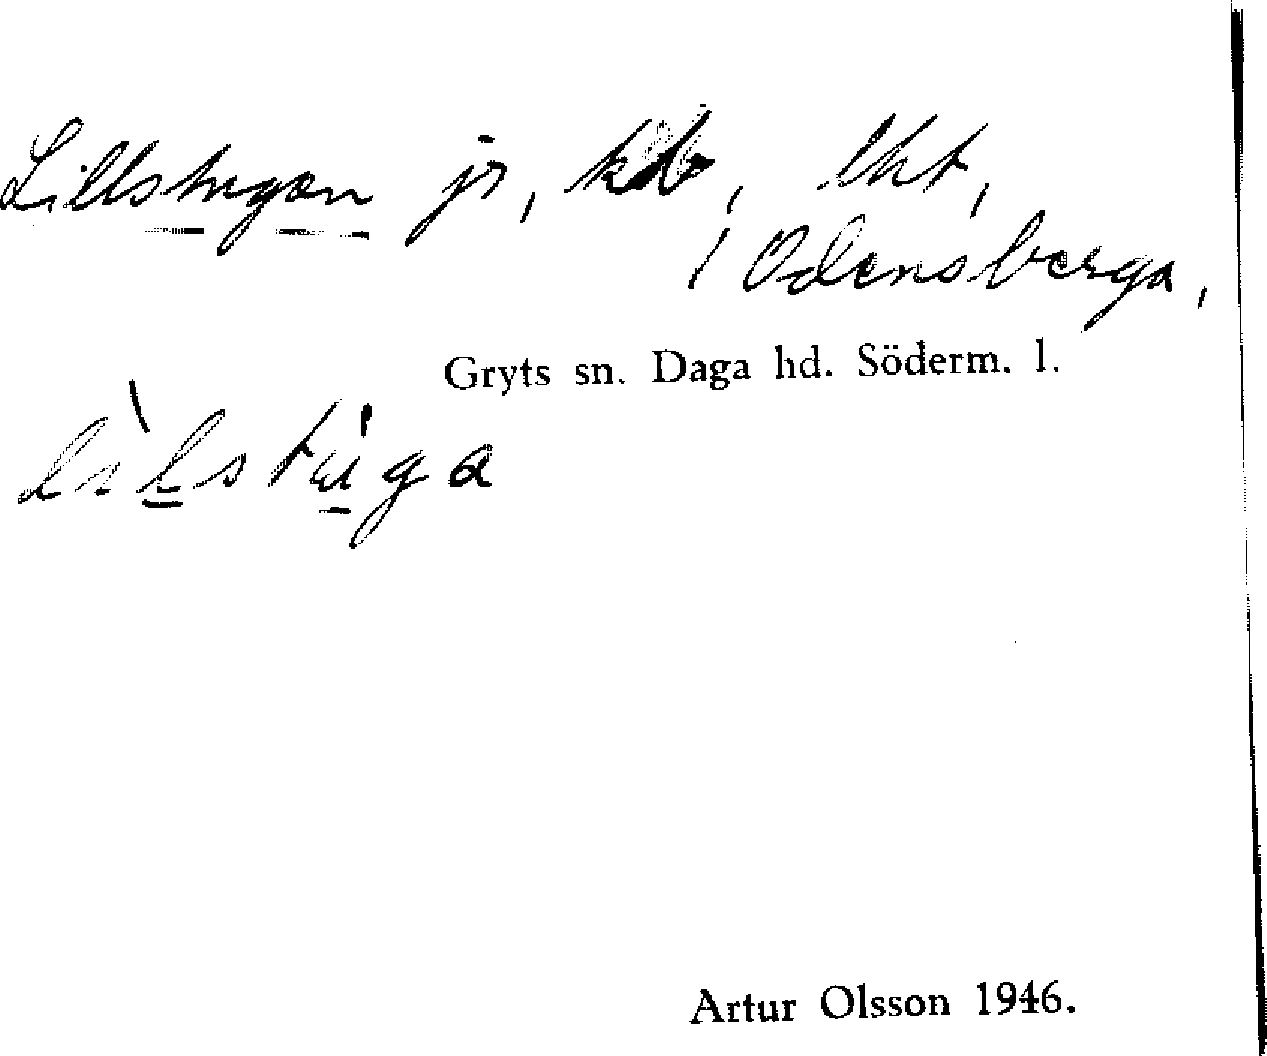 Lillstugan jr,
i Odensberga,
Gryts sn. Daga hd. Söderm. l.
lìlstúga
Artur Olsson 1946.